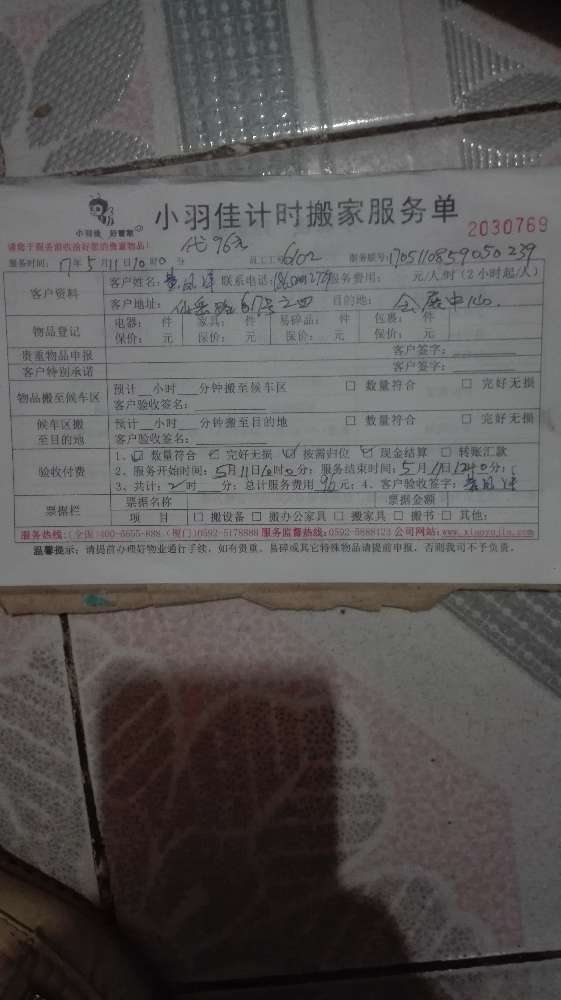 小羽佳 好管家
小羽佳计时搬家服务单
2030769
请您于服务前收拾好您的贵重物品!
代96元
服务时间: 17年5月11日10时0分 员工工号6102 服务联号:1705110859050239
客户资料
客户姓名: 联系电话: 服务费用: 元/人/时(2小时起/人)
客户地址: 61号之四 目的地: 会展中心
物品登记
电器: 件 家具: 件 易碎品: 件 包裹: 件
保价: 元 保价: 元 保价: 元 保价: 元
贵重物品申报 客户签字:
客户特别承诺 客户签字:
物品搬至候车区
预计__小时__分钟搬至候车区 □ 数量符合 □ 完好无损
客户验收签名:
候车区搬至目的地
预计__小时__分钟搬至目的地 □ 数量符合 □ 完好无损
客户验收签名:
验收付费
1、☑ 数量符合 ☑ 完好无损 ☑ 按需归位 ☑ 现金结算 □ 转账汇款
2、服务开始时间: 5月11日10时0分; 服务结束时间: 5月11日12时0分;
3、共计: 2时__分; 总计服务费用 96元; 4、客户验收签字:
票据栏
票据名称 票据金额
项 目 □ 搬设备 □ 搬办公家具 □ 搬家具 □ 搬书 □ 其他:
服务热线:(全国)400-5655-888 (厦门)0592-5178888 服务监督热线:0592-5888123 公司网站:www.xiaoyujia.com
温馨提示: 请提前办理好物业通行手续, 如有贵重、易碎或其它特殊物品请提前申报, 否则我司不予负责。